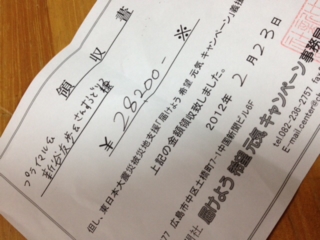 領収書
プライマル会
様
¥28200-※
但し、東日本大震災被災地支援「届けよう 希望 元気 キャンペーン」義援
上記の金額領収致しました。
2012年 2月23日
広島市中区土橋町7-1中国新聞ビル6F
届けよう 希望 元気 キャンペーン事務局
tel.082-236-2757
E-mail.center@c